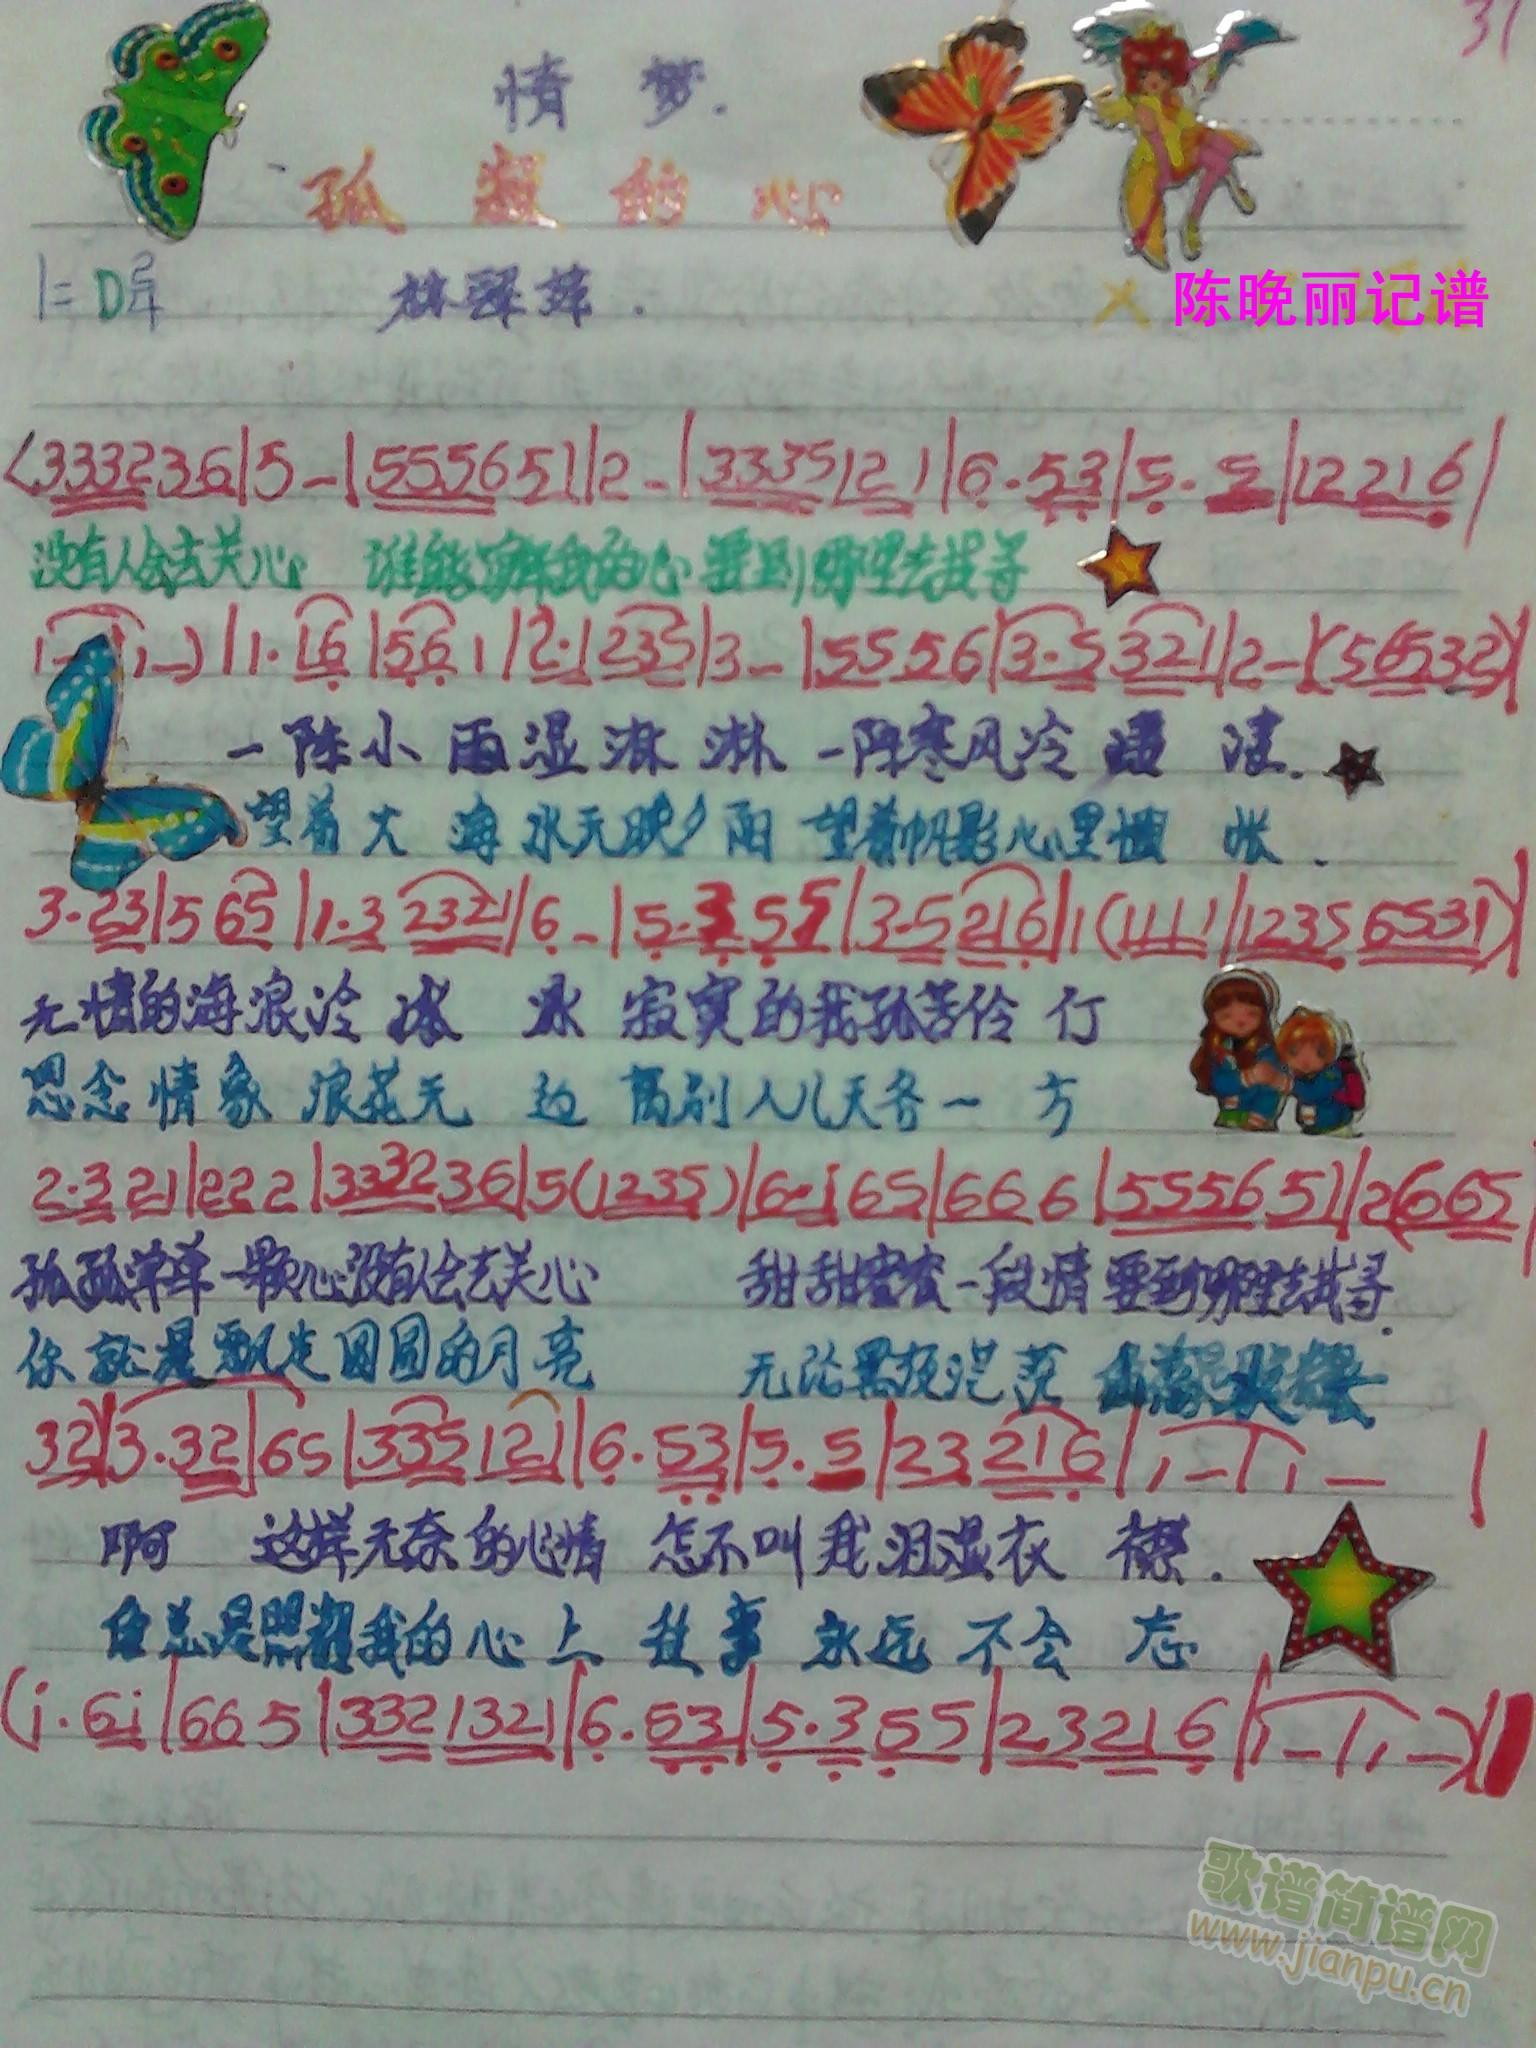 31
情 梦.
孤 凝 的 心
1=D
陈晚丽记谱
(333236|5-|555651|2-|3335121|6·53|5·5|12216|
没有人会去关心 谁能了解我的心 要到哪里去找寻
1-|1-)|1·16|561|2·1235|3-|5556|3·5321|2-|(56532)|
一陈小雨湿淋淋 一阵寒风冷 凄.
望着大海水无 夕阳 望着帆影心里惆怅.
3·23|565|1·32321|6-|5·355|3·5216|1(1111|12356531)|
无情的海浪冷冰冰 寂寞的我孤苦伶仃
思念情象浪花无边 离别人儿天各一方
2·321|222|333236|5(1235)|6·165|666|555651|2(6665
孤孤单单一颗心没有人会去关心 甜甜蜜蜜一段情要到哪里去找寻.
你就是飘走圆圆的月亮 无论黑夜茫茫
32)|3·32|65|335121|6·53|5·5|23216|1-|1-|
啊 这样无奈的心情 怎不叫我泪湿衣襟.
你总是照耀我的心上 往事永远不会忘
(i·6i|665|3321321|6·53|5·355|23216|1-|1-)|
歌谱简谱网
www.jianpu.cn